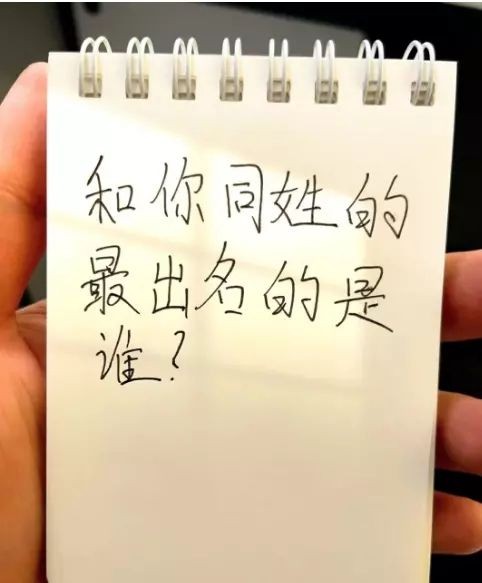 和你同姓的
最出名的是
谁?